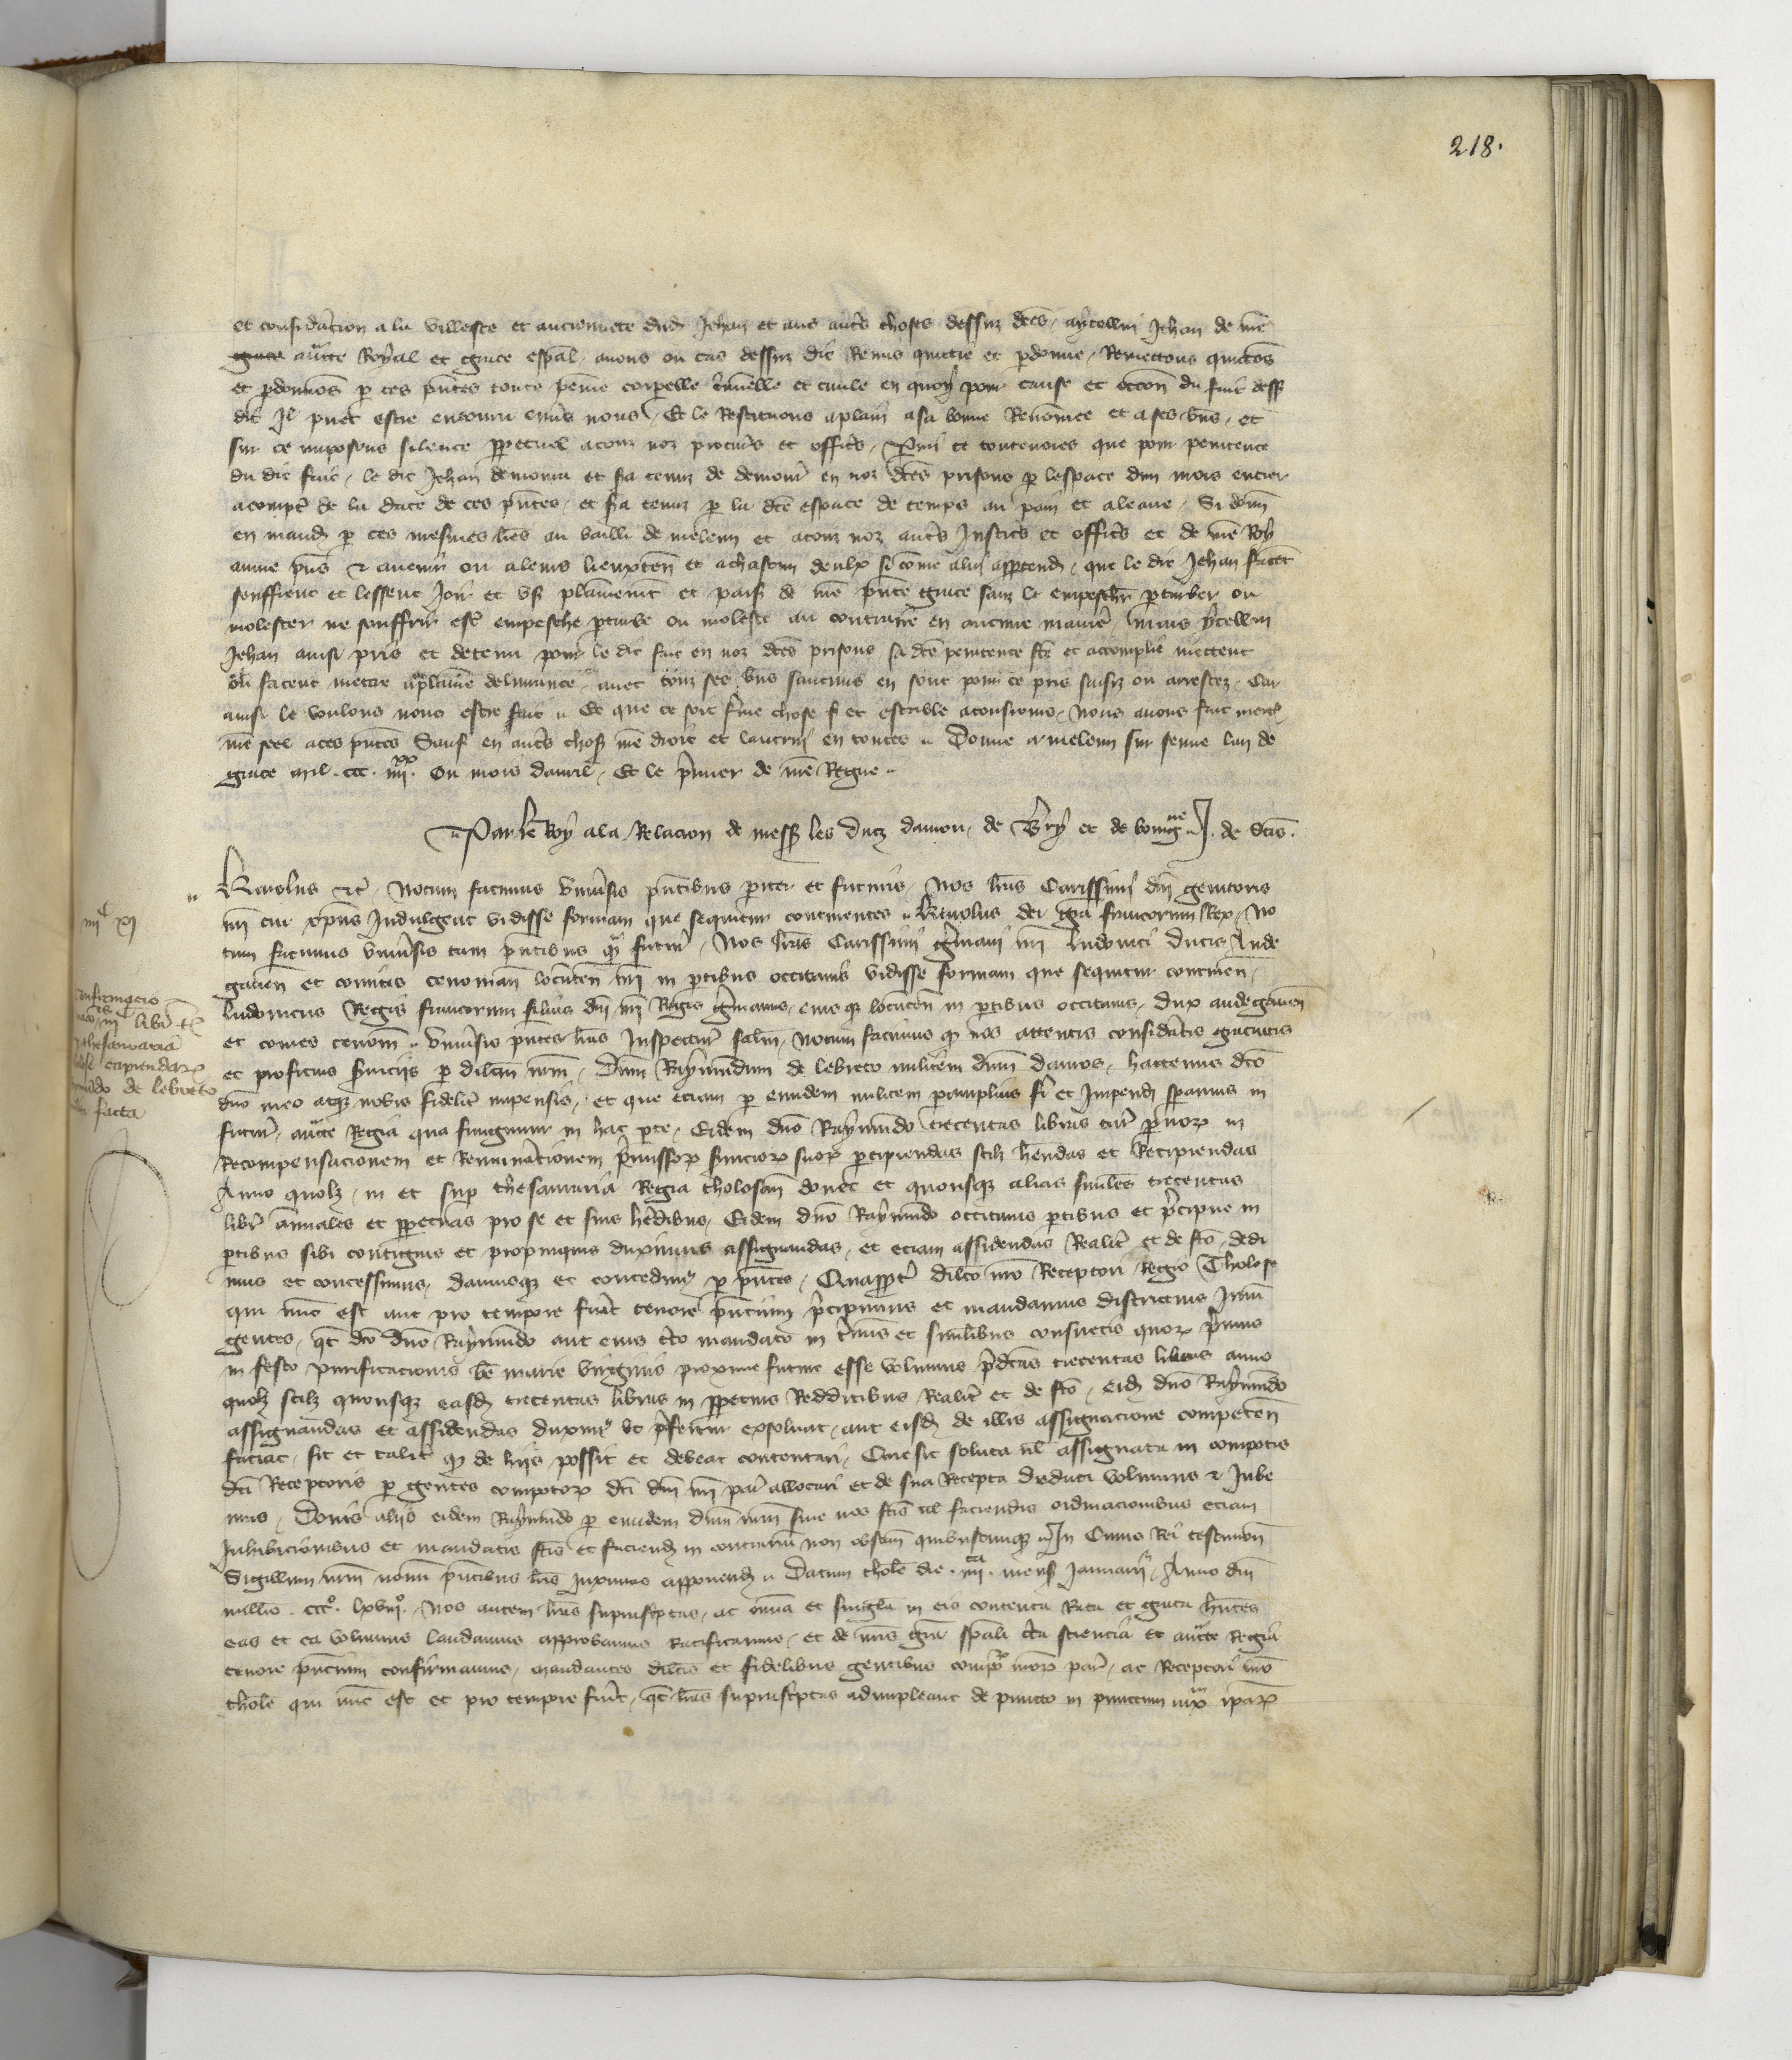 218.
et consideracion a la villesce et anciennete dud Jehan et aus autres choses dessuz dces, aycellui Jehan de nre
grace auctte Royal et grace espal, avons ou cas dessuz dit Remis quitte et pdonne, Remettons quittons
et pdonnons p ces pntes toute peine corpelle cminelle et civile en quoy pour cause et occon du fait dess
dit Il puet estre encouru envs nous, Et le Restituons aplain a sa bonne Renomee et a ses bns, et
sur ce imposons silence ppetuel a touz noz procurs et officrs, Parmi ce toutevoies que pour penitence
du dit fait, le dit Jehan demourra et sa tenuz de demourer en noz dces prisons p lespace dun mois entier
a compter de la date de ces pntes, et sa tenuz p la dce espace de temps au pain et a leaue, Si donn
en mand p ces mesmes lres au bailli de meleun et a touz noz autrs Justicrs et officrs et de nre Roy
aume pns et avenir ou a leurs lieuxten et a chascun deulx si come a lui appartend, que le dit Jehan facent
seuffrent et lessent Joir et us plainement et paisib de nre pnte grace sanz le empescher pturber ou
molester ne souffrir estre empeschie pturbe ou moleste au contraire en aucune manier, mais ycellui
Jehan ainsi pris et detenu pour le dit fait en noz dces prisons sa dce penitence fce et accomplie mettent
ou facent mettre a plaine delivrance avec touz ses bns saucuns en sont pour ce pris saisiz ou arrestez, Car
ainsi le voulons nous estre fait Et que ce soit ferme chose et estable a tousjours, Nous avons fait mettr
nre seel a ces pntes Sauf en autrs chos nre droit et lautrui en toutes Donne a meleun sur seine lan de
grace mil ccc iiii xx ou mois davril, Et le pmier de nre Regne
Par le Roy a la Relacion de mess les ducz danjou, de Bry et de bourgne J. de Scis.
Karolus etc, Notum facimus universis pntibus pariter et futuris, Nos lras Carissimi dni genitoris
nri cui xpus Indulgeat vidisse formam que sequitur continentes Karolus dei gra francorum Rex, No
tum facimus universis tam pntibus qm futur, Nos lras Carissimi germani nri ludovici ducis Ande
gaven et comitis cenoman locumten nri in ptibus occitanis vidisse formam que sequitur continen,
ludovicus Regis francorum filius dni nri Regis germanus, eiusque locumten in ptibus occitanis, dux andegaven
et comes cenom universis pntes lras Inspectur salm, Notum facimus q nos attentis consideratis gratuitis
et proficuis serviciis p dilcum nrm, Dnm Raymundum de lebreto militem dnm dauros, hactenus dco
dno meo atque nobis fideliter impensis, et que etiam p eumdem militem pamplius fi et Impend speramus in
futur, auctte Regia qua fungimur in hac pte, Eidem dno Raymundo trecentas libras tur pvor in
Recompensacionem et Remuneracionem pmissor servicior suor pcipiendas scilz hendas et Recipiendas
Anno quolz, in et sup thesauraria Regia tholosan donec et quousque alias similes trecentas
libr annales et ppetuas pro se et suis heredibus, Eidem dno Raymundo occitanis ptibus et precipue in
ptibus sibi contiguis et propinquis duximus assignandas, et eciam assidendas Realiter et de fco, dedi
mus et concessimus, damusque et concedim p pntes, Quapropter dilco nro Receptori Regio Tholose
qui nunc est aut pro tempore fuerit tenore pntium pcipimus et mandamus districcius Iniun
gentes, qt dco dno Raymundo aut eius cto mandato in termis et similibus consuetis quor primus
in festo purificacionis be marie virginis proxime future esse volumus pdcas trecentas libras anno
quolz scilz quousque easd trecentas libras in ppetuis Redditibus Realiter et de fco, eid dno Raymundo
assignandas et assidendas duxim ut pfertur exsolvat, aut eisd de illis assignacione competen
faciat, sic et taliter q de hiis possit et debeat contentari, Que sic soluta vl assignata in compotis
dci Receptoris p gentes compotor dci dni nri par allocari et de sua Recepta deduci volumus et Jube
mus, Donis aliis eidem Raymundo p eumdem dnm nrm sive nos fcis vl faciendis ordinacionibus eciam
Inhibicionibus et mandatis fcis et faciend in contrarium non obstan quibuscumque In Cuius Rei testimon
Sigillum nrm novum pntibus lris duximus apponend Datum thole die iiii ta mens Januarii, Anno dni
millio ccc o lxviii o, Nos autem lras suprascptas, ac omnia et singula in eis contenta Rata et grata hntes
eas et ea volumus laudamus approbamus ratificamus, et de nris gra spali cta sciencia et auctte Regia
tenore pntium confirmamus, mandantes dilcis et fidelibus gentibus compor nror par, ac Receptori nro
thole qui nunc est et pro tempore fuerit, qt lras suprascptas adimpleant de puncto in punctum iux ipar
iiii c xj
Confirmacio
iii c libr t
thesauraria
capiendar
de lebreto
facta